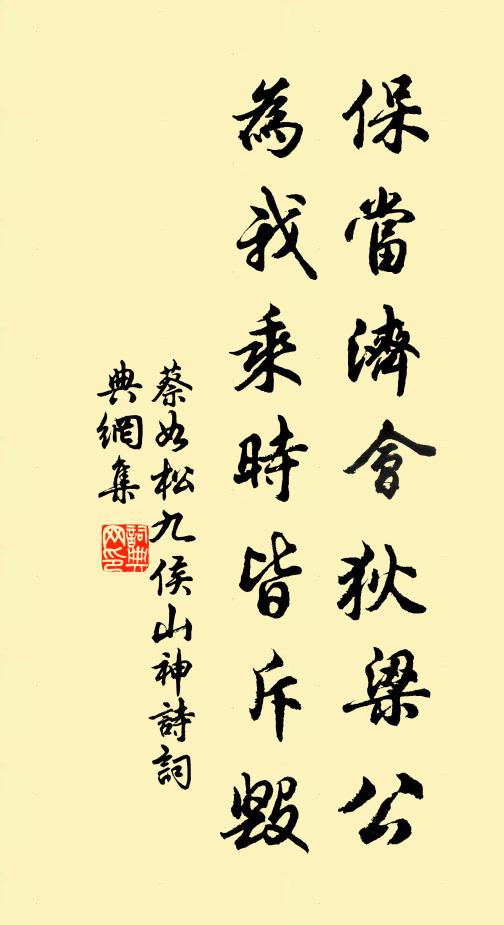 保當濟會狄梁公
為我乘時皆斥毀
蔡如松九侯山神詩詞
典網集
詞典網印